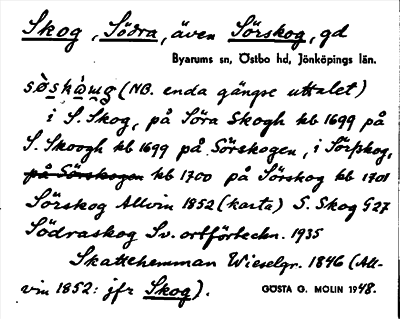 Skog, Södra, även Sörskog, gd
Byarums sn, Östbo hd, Jönköpings län.
(NB. enda gängse uttalet)
i S. Skog, på Söra Skogh kb 1699 på
S. Skoogh kb 1699 på Sörskogen, i Sörskog,
på Sörskogen kb 1700 på Sörskog kb 1701
Sörskog Allvin 1852 (karta) S. Skog G27
Södraskog Sv. ortförteckn. 1935
Skattehemman Wieselgr. 1846 (All-
vin 1852: jfr Skog).
GÖSTA G. MOLIN 1948.